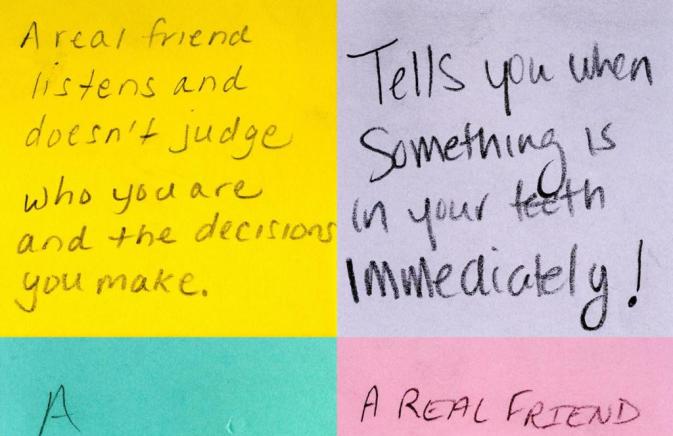 A real friend
listens and
doesn't judge
who you are
and the decisions
you make.
Tells you when
Something is
in your teeth
Immediately!
A
A REAL FRIEND